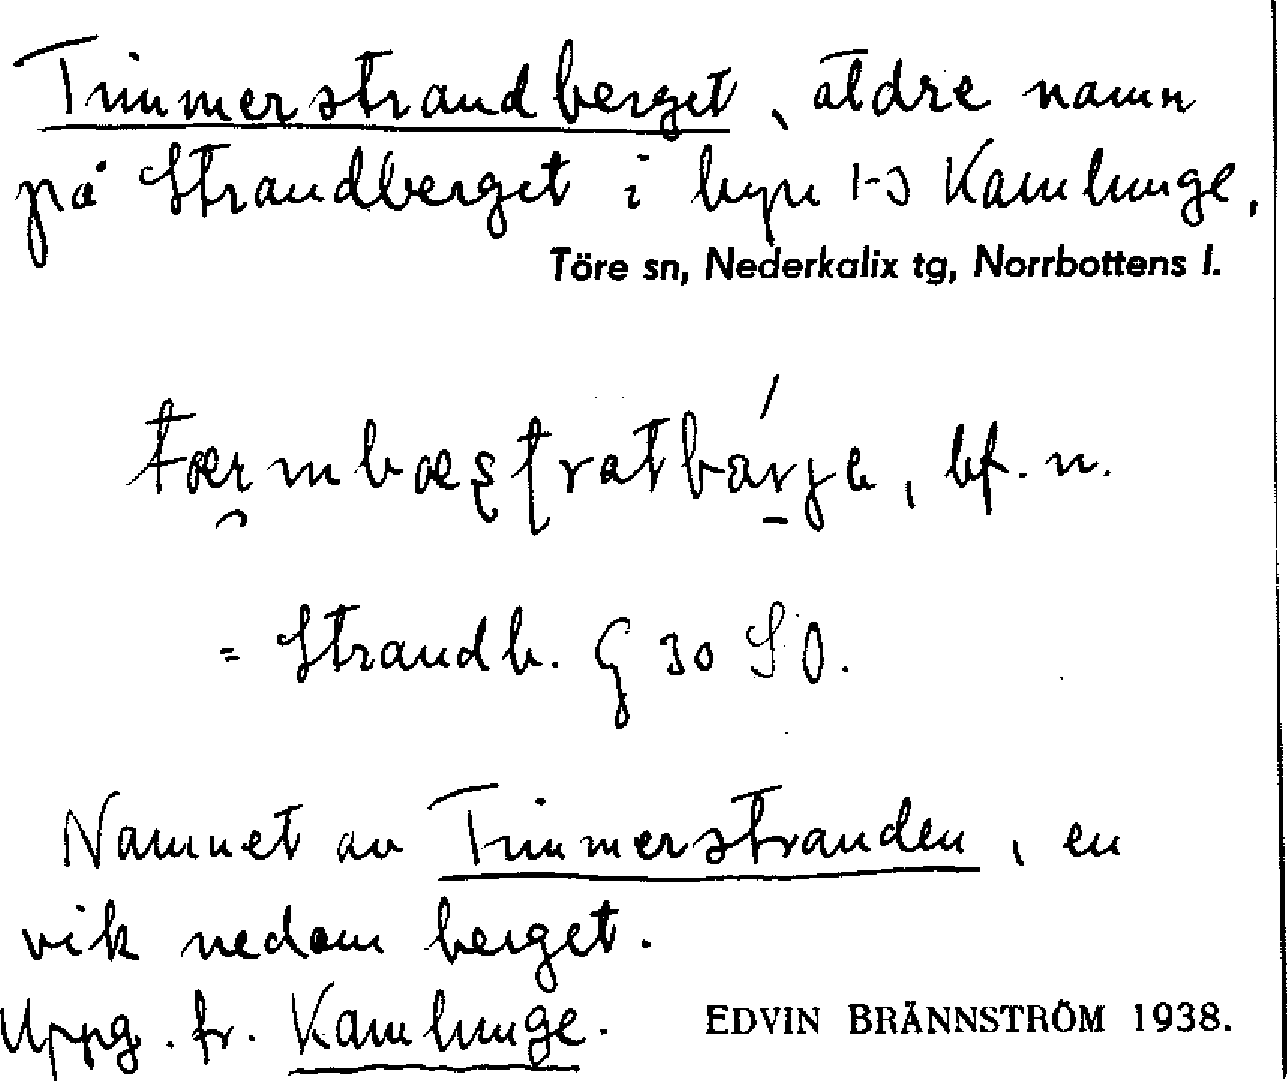 Timmerstrandberget, äldre namn
på Strandberget i byn 1-3 Kamlunge,
Töre sn, Nederkalix tg, Norrbottens l.
bf. n.
= Strandb. G 30 SO.
Namnet av Timmerstranden, en
vik nedom berget.
Uppg. fr. Kamlunge.
EDVIN BRÄNNSTRÖM 1938.